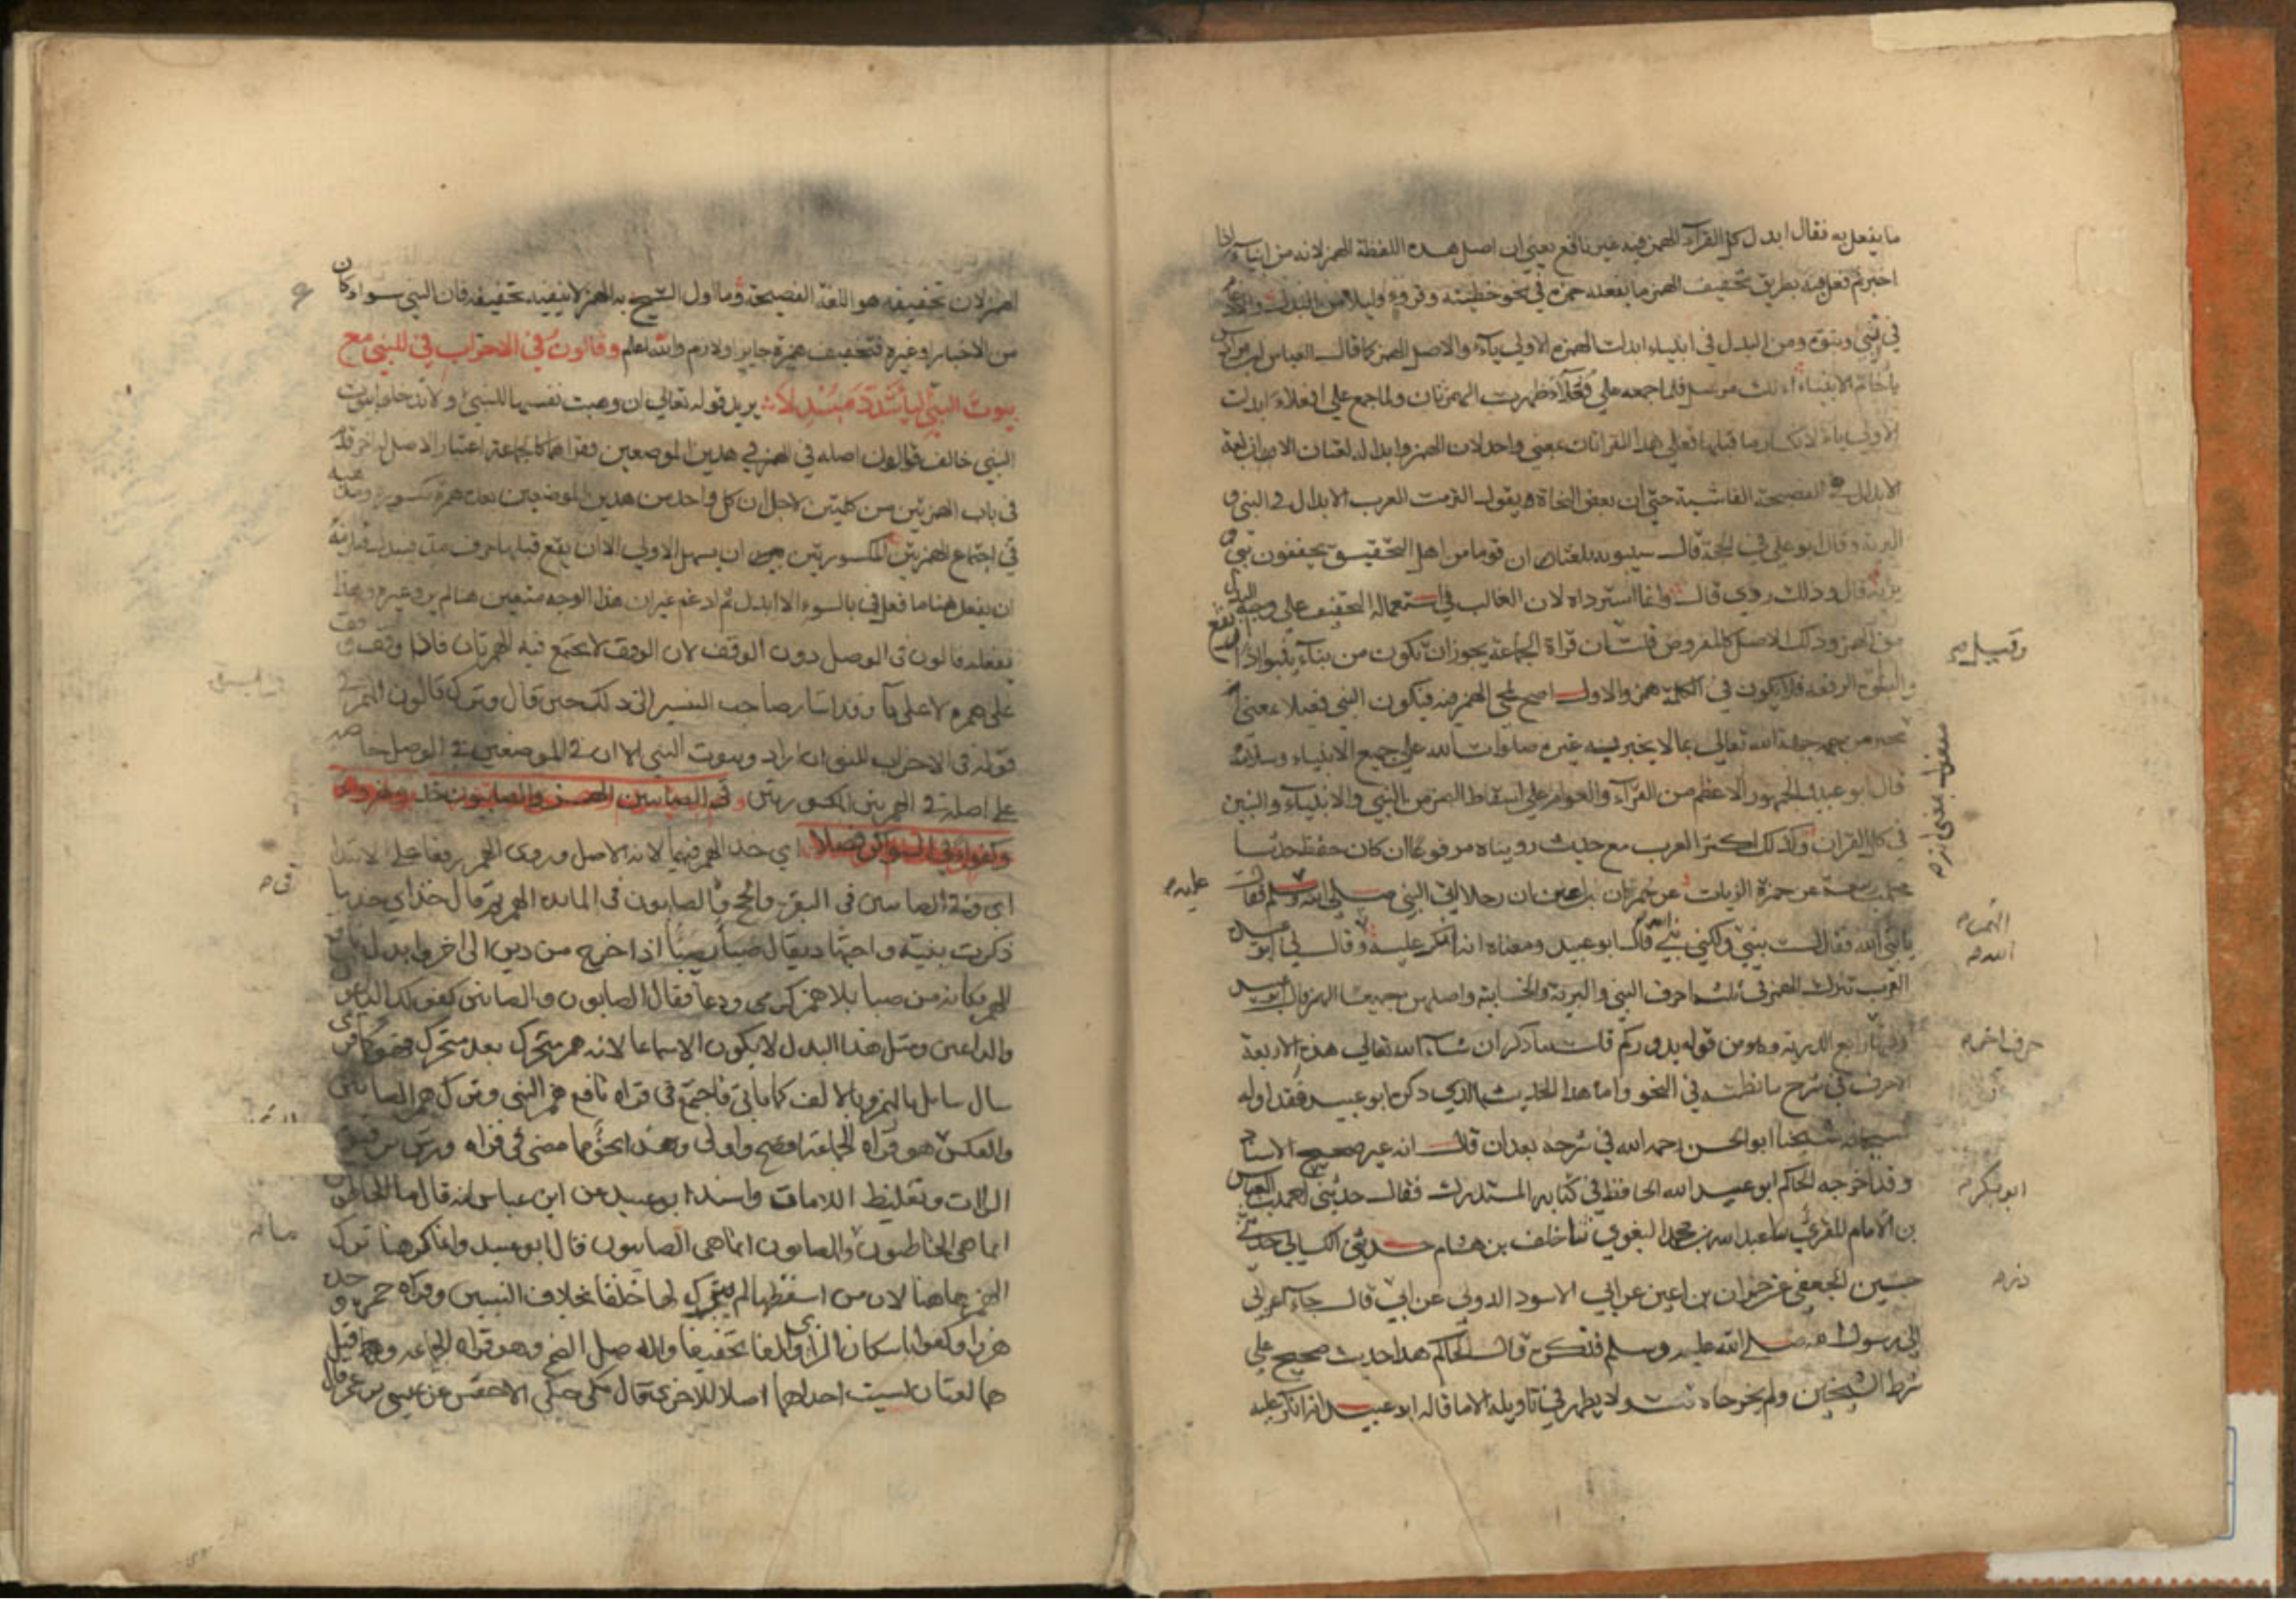 ما يفعل به فقال ابدل كل القرآء الهمز فيه غير نافع يعني ان اصل هذه اللفظة الهمز لانه من انباء اذا
اخبر ثم فعل فيه بطريق تخفيف الهمز ما يفعله حمزة في نحو خطيئة وقروء وليلا من البدل والادغام
في نبي ونبوة ومن البدل في انبياء ابدلت الهمزة الاولي ياء والاصل الهمز كما قال العباس بن مرداس
يا خاتم الانبياء انك مرسل فلما جمعه علي فعلاء ظهرت الهمزتان ولما جمع علي افعلاء ابدلت
الاولي ياء لانكسار ما قبلها فعلي هذا القراتان بمعني واحد لان الهمز وابداله لغتان الا ان لغة
الابدال هي الفصيحة الفاشية حتي ان بعض النحاة يقول التزمت العرب الابدال في النبي و
البرية وقال ابو علي في الحجة قال سيبويه بلغنا ان قوما من اهل التحقيق يحققون نبي و
برية قال وذلك ردي قال وانما استرداه لان الغالب في استعماله التخفيف علي وجه البدل
من الهمز وذلك الاصل كالمرفوض قلت ان قراة الجماعة يجوز ان تكون من نبا ينبوا اذا ارتفع
فلا يكون في الكلمة همز والاول اصح لمجي الهمز فيه فيكون النبي فعيلا بمعني
مخبر من جهة الله تعالي بما لا يخبر به غيره صلوات الله علي جميع الانبياء وسلامه
قال ابو عبيد الجمهور الاعظم من القرآء والعوام علي اسقاط الهمز من النبي والانبياء والنبين
في كل القران وكذلك اكثر العرب مع حديث رويناه مرفوعا ان كان حفظ حدثنا
محمد بن ربيعة عن حمزة الزيات عن حمران بن اعين ان رجلا اتي النبي صلي الله وسلم فقال
يا نبيء الله فقال لست بنبيء ولكني نبي الله قال ابو عبيد ومعناه انه انكر عليه وقال لي ابو عبيدة
العرب تترك الهمز في ثلثة احرف النبي والبرية والخابية واصلهن جميعا الهمز قال ابو عبيد
وفيها رابع الذرية وهو من قوله يذروكم قلت ساذكر ان شاء الله تعالي هذه الاربعة
الاحرف في شرح ما نظمته في النحو واما هذا الحديث الذي ذكره ابو عبيد فقد اوله
شيخنا ابو الحسن رحمه الله في شرحه بعد ان قال انه غير صحيح الاسناد
وقد اخرجه الحاكم ابو عبد الله الحافظ في كتابه المستدرك فقال حدثني احمد بن العباس
بن الامام المقري ثنا عبد الله بن محمد البغوي ثنا خلف بن هشام حدثني الكسائي حدثني
حسين الجعفي عن حمران بن اعين عن ابي الاسود الدولي عن ابي قال جاء اعرابي
الي رسول الله صلي الله عليه وسلم فذكره قال الحاكم هذا حديث صحيح علي
شرط الشيخين ولم يخرجاه قلت ولا يظهر في تاويله الا ما قاله ابو عبيد انه انكر عليه
وقيل
سقط بمعني انه
عليه
الهمز
الله
حرف اخر
ابو بكر
ذر
الهمز لان تخفيفه هو اللغة الفصيحة وما اول الشيخ به الهمز لا ينفيه تخفيفه فان النبي سواء كان
من الاخبار او غيره فتخفيف همزه جايز او لازم والله اعلم وقالون في الاحزاب في للنبي مع
بيوت النبي الياء شدد مبدلا يريد قوله تعالي ان وهبت نفسها للنبي ولا تدخلوا بيوت
النبي خالف قالون اصله في الهمز في هذين الموضعين فقراهما كالجماعة اعتبار الاصل له اخر قدمه
في باب الهمزتين من كلمتين لاجل ان كل واحد من هذين الموضعين بعده همزة مكسورة ومذهبه
في اجتماع الهمزتين المكسورتين ان يسهل الاولي الا ان يقع قبلها حرف مد فيبدل فلزمه
ان يفعل هنا ما فعل في بالسوء الا ابدل ثم ادغم غير ان هذا الوجه متعين هنا لم يرو غيره وهذا
يفعله قالون في الوصل دون الوقف لان الوقف لا يجتمع فيه الهمزتان فاذا وقف وقف
علي همزة لا علي ياء وقد اشار صاحب التيسير الي ذلك حين قال وترك قالون الهمز في
قوله في الاحزاب للنبي ان اراد وبيوت النبي الا ان في الموضعين في الوصل خاصة
علي اصله في الهمزتين المكسورتين وفي الصابين الهمز والصابيون خذ وهزوا
وكفوا في السواكن فصلا اي خذ الهمز فيهما لانه الاصل وروي الهمز رفعا علي الابتدا
اي وفي الصابين في البقرة والحج والصابون في المايدة الهمز ثم قال خذ اي خذ ما
ذكرت بنية واجتهاد يقال صبا يصبا اذا خرج من دين الي اخر وابدل نافع
الهمز فكانه من صبا بلا همز كرمي ودعا فقال الصابون والصابين كقولك الداعون
والداعين ومثل هذا البدل لا يكون الا سماعا لانه همز متحرك بعد متحرك فهو كما قري
سال سايل بالهمز وبالالف كما ياتي فاجتمع في قراه نافع همز النبي وترك همز الصابين
والعكس هو قراه الجماعة افصح واولي وهذا نحو مما مضي في قراه ورش من ترقيق
الراات وتغليظ اللامات واسند ابو عبيد عن ابن عباس انه قال ما الخاطون
انما هي الخاطيون والصابون انما هي الصابيون قال ابو عبيد وانما كرهنا ترك
الهمز هاهنا لان من اسقطها لم يترك لها خلفا بخلاف النبيين وقراه حمزة وحده
هزوا وكفوا باسكان الزاي والفا تخفيفا والاصل الضم وهو قراه الجماعة وقيل
هما لغتان ليست احداهما اصلا للاخري قال مكي حكي الاخفش عن عيسي بن عمر قال